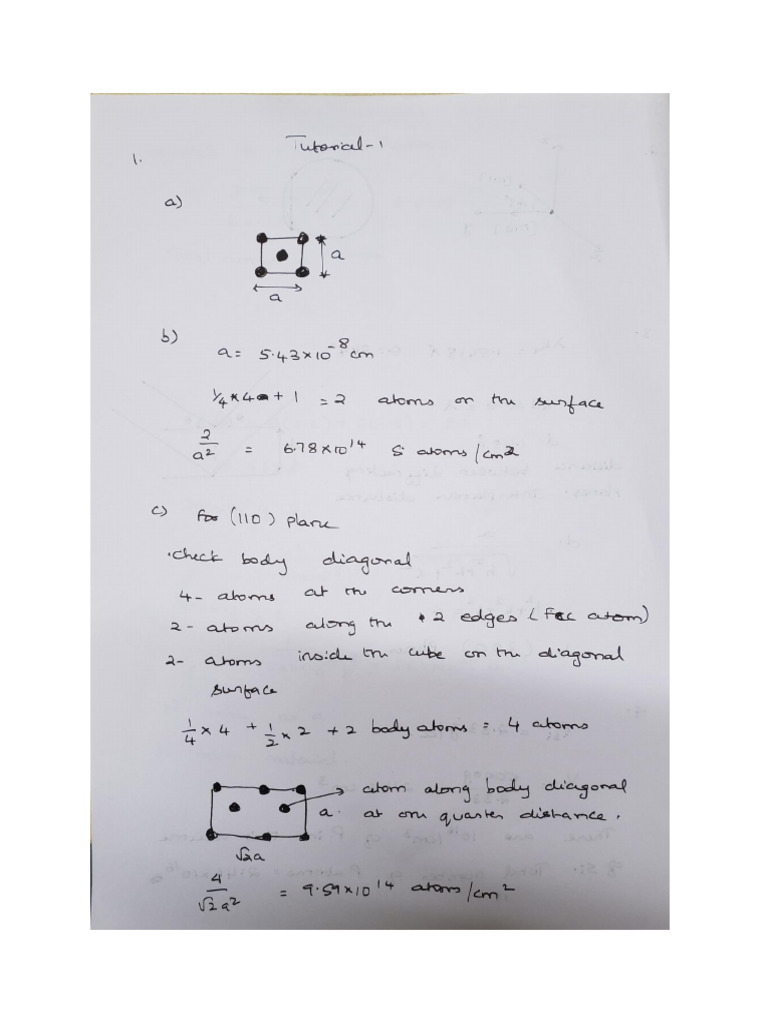 Tutorial-1
1.
a)
a
a
b)
a = 5.43×10⁻⁸ cm
1/4 × 4 + 1 = 2 atoms on the surface
2/a² = 6.78×10¹⁴ Si atoms/cm²
c) For (110) plane
·check body diagonal
4- atoms at the corners
2- atoms along the 2 edges (FCC atom)
2- atoms inside the cube on the diagonal
surface
1/4 × 4 + 1/2 × 2 + 2 body atoms = 4 atoms
→ atom along body diagonal
a. at one quarter distance.
√2a
4/√2a² = 9.59×10¹⁴ atoms/cm²